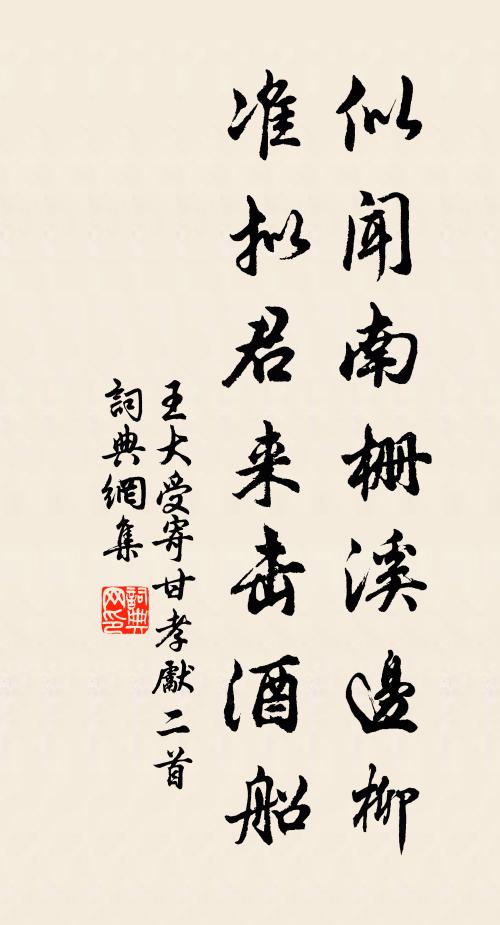 似闻南栅溪邊柳
准拟君来击酒船
王大受寄甘孝獻二首
詞典網集
詞典网印